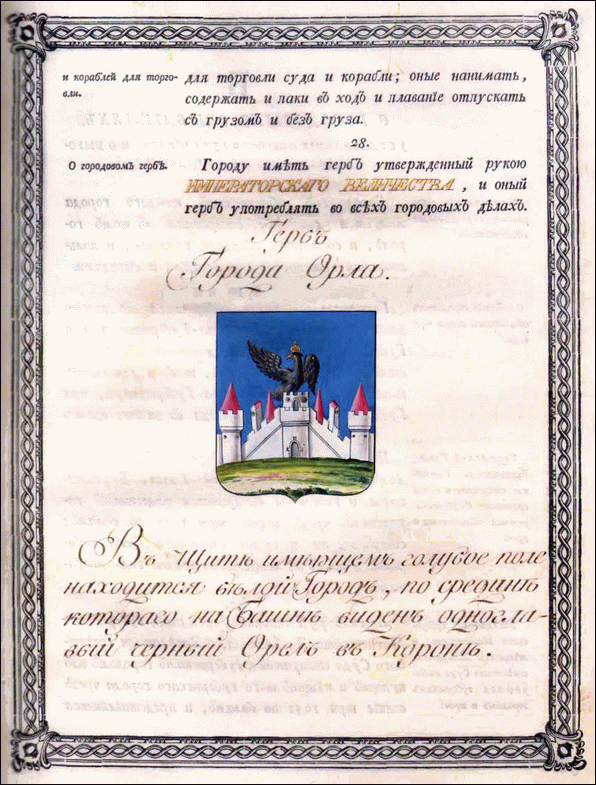 и кораблей для торго-
вли.
для торговли суда и корабли; оные нанимать,
содержать и паки въ ходъ и плаванїе отпускать
съ грузомъ и безъ груза.
28.
О городовомъ гербѣ.
Городу имѣть гербъ утвержденный рукою
ИМПЕРАТОРСКАГО ВЕЛИЧЕСТВА, и оный
гербъ употреблять во всѣхъ городовыхъ дѣлахъ.
Гербъ
Города Орла.
Въ Щитѣ имѣющемъ голубое поле
находится бѣлой Городъ, по срединѣ
котораго на башнѣ виденъ одногла-
вый черный Орелъ въ Коронѣ.